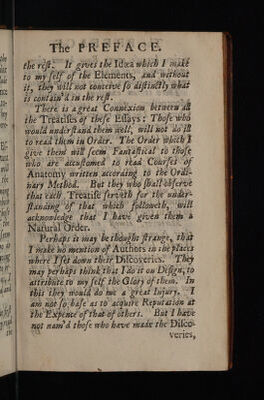 The PREFACE.
the rest. It gives the Idea which I make
to my self of the Elements, and without
it, they will not conceive so distinctly what
is contain'd in the rest.
There is a great Connexion between all
the Treatises of these Essays: Those who
would understand them well, will not do ill
to read them in Order. The Order which I
give them will seem Fantastical to those
who are accustomed to read Courses of
Anatomy written according to the Ordi-
nary Method. But they who shall observe
that each Treatise serveth for the under-
standing of that which followeth, will
acknowledge that I have given them a
Natural Order.
Perhaps it may be thought strange, that
I make no mention of Authors in the places
where I set down their Discoveries. They
may perhaps think that I do it on Design, to
attribute to my self the Glory of them. In
this they would do me a great Injury. I
am not so base as to acquire Reputation at
the Expence of that of others. But I have
not nam'd those who have made the Disco-
veries,